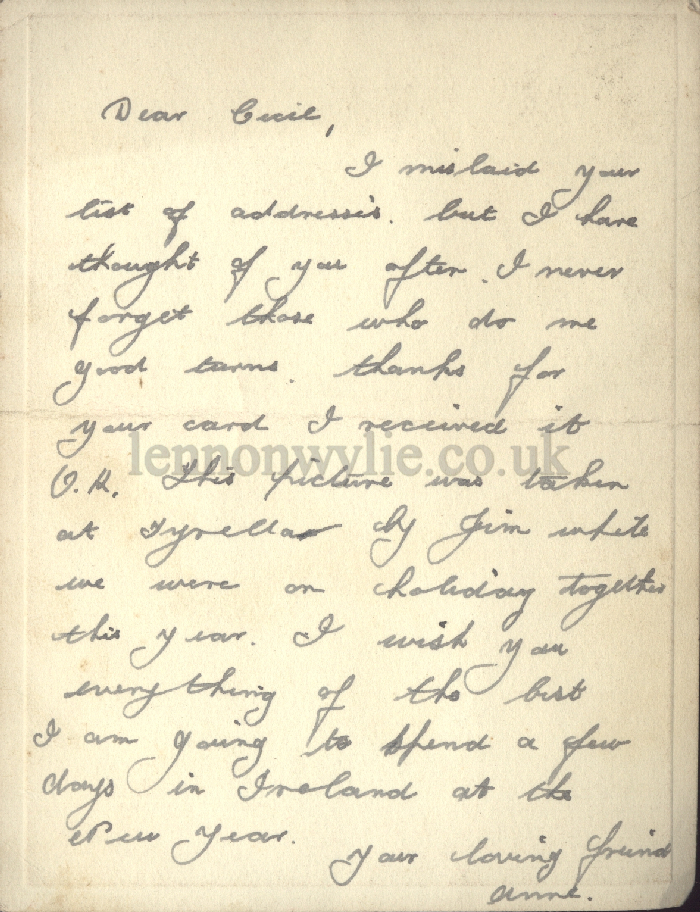 Dear Cecil,
I mislaid your
list of addressis. but I have
thought of you often. I never
forget those who do me
good turns. thanks for
your card I received it
lennonwylie.co.uk
O.K. This picture was taken
at Tyrella by Jim white
we were on choliday together
this year. I wish you
everything of the best
I am going to spend a few
days in Ireland at the
New Year.
Your loving friend
Anne.